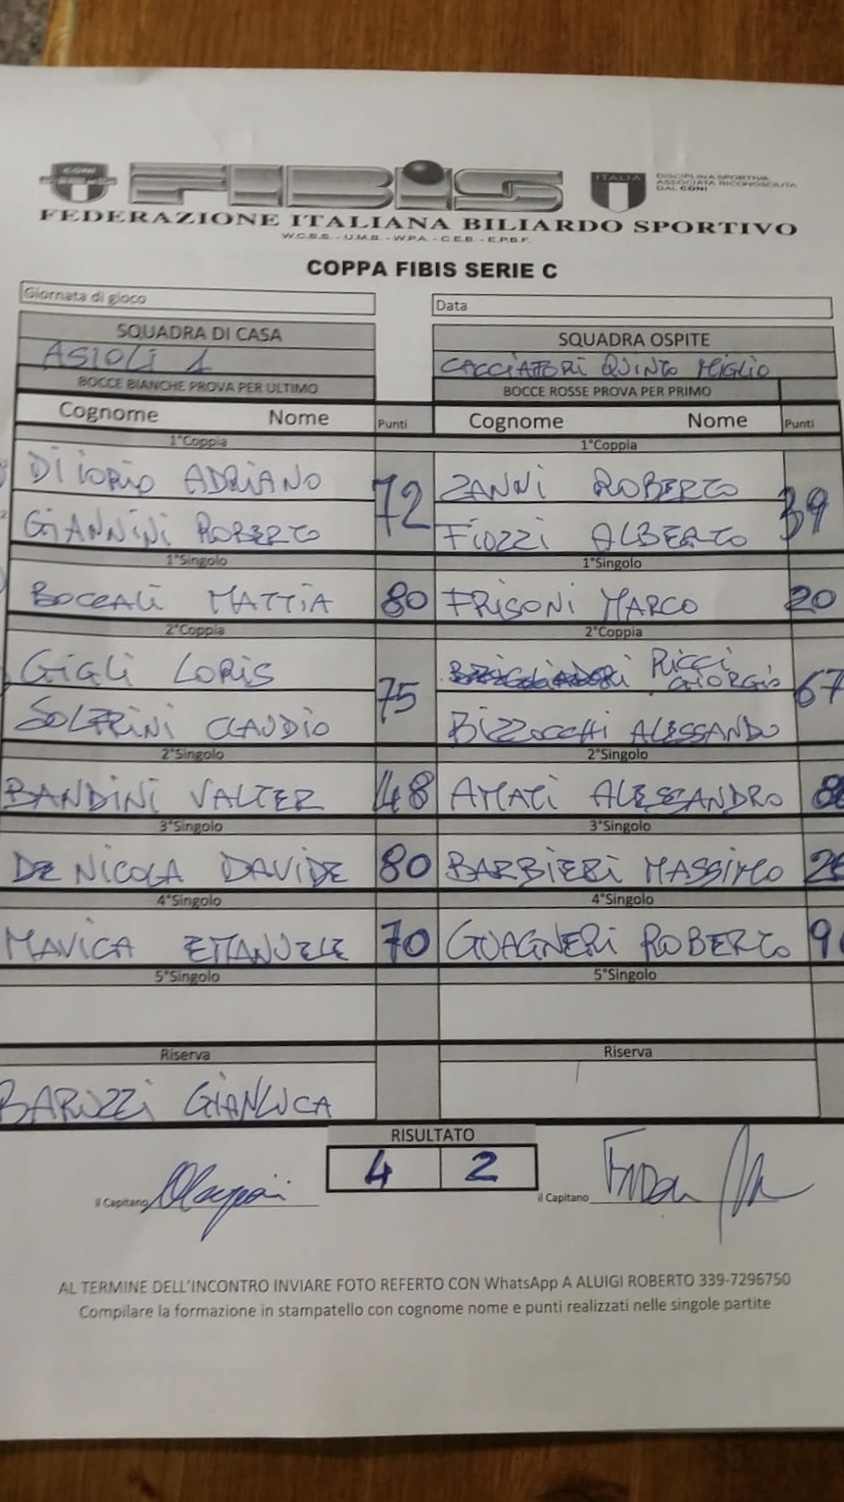 CONI
FIBIS
ITALIA
DISCIPLINA SPORTIVA
ASSOCIATA RICONOSCIUTA
DAL CONI
FEDERAZIONE ITALIANA BILIARDO SPORTIVO
W.C.B.S. - U.M.B. - W.P.A. - C.E.B. - E.P.B.F.
COPPA FIBIS SERIE C
Giornata di gioco
Data
SQUADRA DI CASA
SQUADRA OSPITE
ASIOLI 1
CACCIATORI QUINTO MIGLIO
BOCCE BIANCHE PROVA PER ULTIMO
BOCCE ROSSE PROVA PER PRIMO
Cognome Nome Punti Cognome Nome Punti
1°Coppia 1°Coppia
DI IORIO ADRIANO 72 ZANNI ROBERTO 39
GIANNINI ROBERTO FIOZZI ALBERTO
1°Singolo 1°Singolo
BOCCALI MATTIA 80 FRISONI MARCO 20
2°Coppia 2°Coppia
GIGLI LORIS 75 RICCI GIORGIO 67
SOLFRINI CLAUDIO BIZZOCCHI ALESSANDO
2°Singolo 2°Singolo
BANDINI VALTER 48 AMATI ALESSANDRO
3°Singolo 3°Singolo
DE NICOLA DAVIDE 80 BARBIERI MASSIMO
4°Singolo 4°Singolo
MAVICA EMANUELE 70 GUAGNERI ROBERTO
5°Singolo 5°Singolo
Riserva Riserva
BARUZZI GIANLUCA
RISULTATO
4 2
il Capitano il Capitano
AL TERMINE DELL'INCONTRO INVIARE FOTO REFERTO CON WhatsApp A ALUIGI ROBERTO 339-7296750
Compilare la formazione in stampatello con cognome nome e punti realizzati nelle singole partite